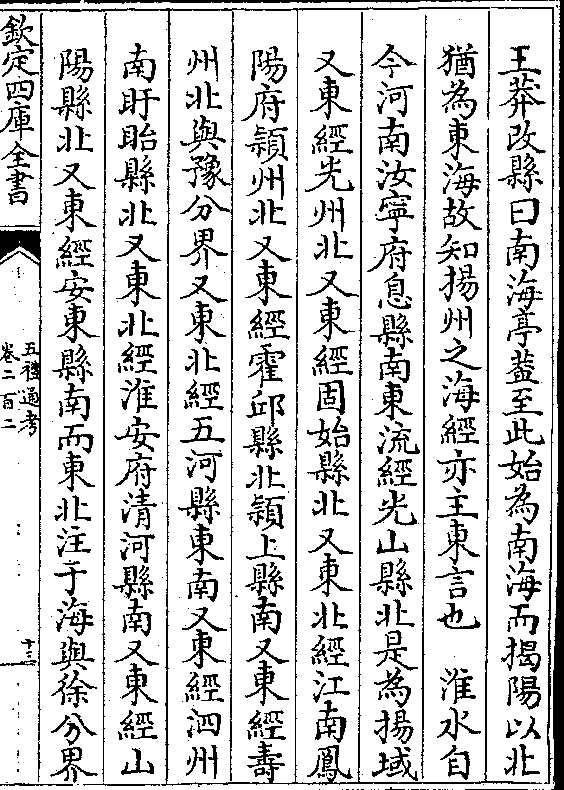 王莽改縣曰南海亭蓋至此始為南海而揭陽以北
猶為東海故知揚州之海經亦主東言也　淮水自
今河南汝寧府息縣南東流經光山縣北是為揚域
又東經光州北又東經固始縣北又東北經江南鳳
陽府潁州北又東經霍邱縣北潁上縣南又東經壽
州北與豫分界又東北經五河縣東南又東經泗州
南盱眙縣北又東北經淮安府清河縣南又東經山
陽縣北又東經安東縣南而東北注于海與徐分界
欽定四庫全書
五禮通考
卷二百二
十三